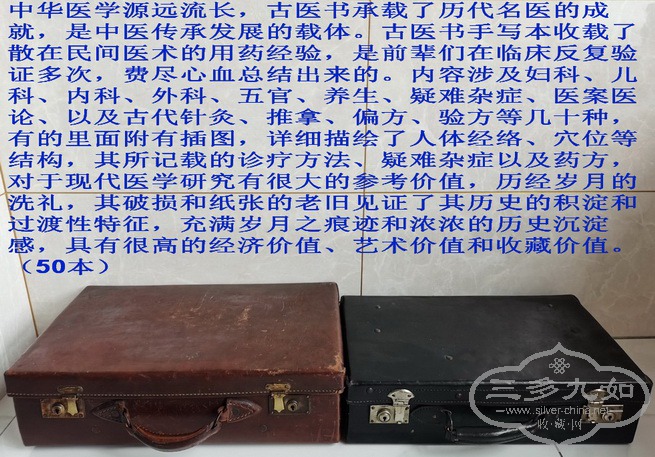 中华医学源远流长，古医书承载了历代名医的成
就，是中医传承发展的载体。古医书手写本收载了
散在民间医术的用药经验，是前辈们在临床反复验
证多次，费尽心血总结出来的。内容涉及妇科、儿
科、内科、外科、五官、养生、疑难杂症、医案医
论、以及古代针灸、推拿、偏方、验方等几十种，
有的里面附有插图，详细描绘了人体经络、穴位等
结构，其所记载的诊疗方法、疑难杂症以及药方，
对于现代医学研究有很大的参考价值，历经岁月的
洗礼，其破损和纸张的老旧见证了其历史的积淀和
过渡性特征，充满岁月之痕迹和浓浓的历史沉淀
感，具有很高的经济价值、艺术价值和收藏价值。
（50本）
三多九如
www.silver-china.net
收·藏·网